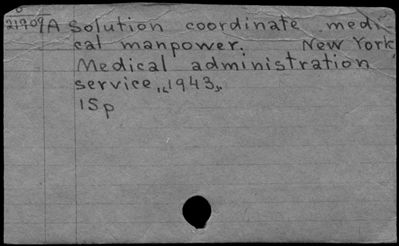 21709 A solution coordinate medi
cal manpower. New York
Medical administration
service, 1943.
15p